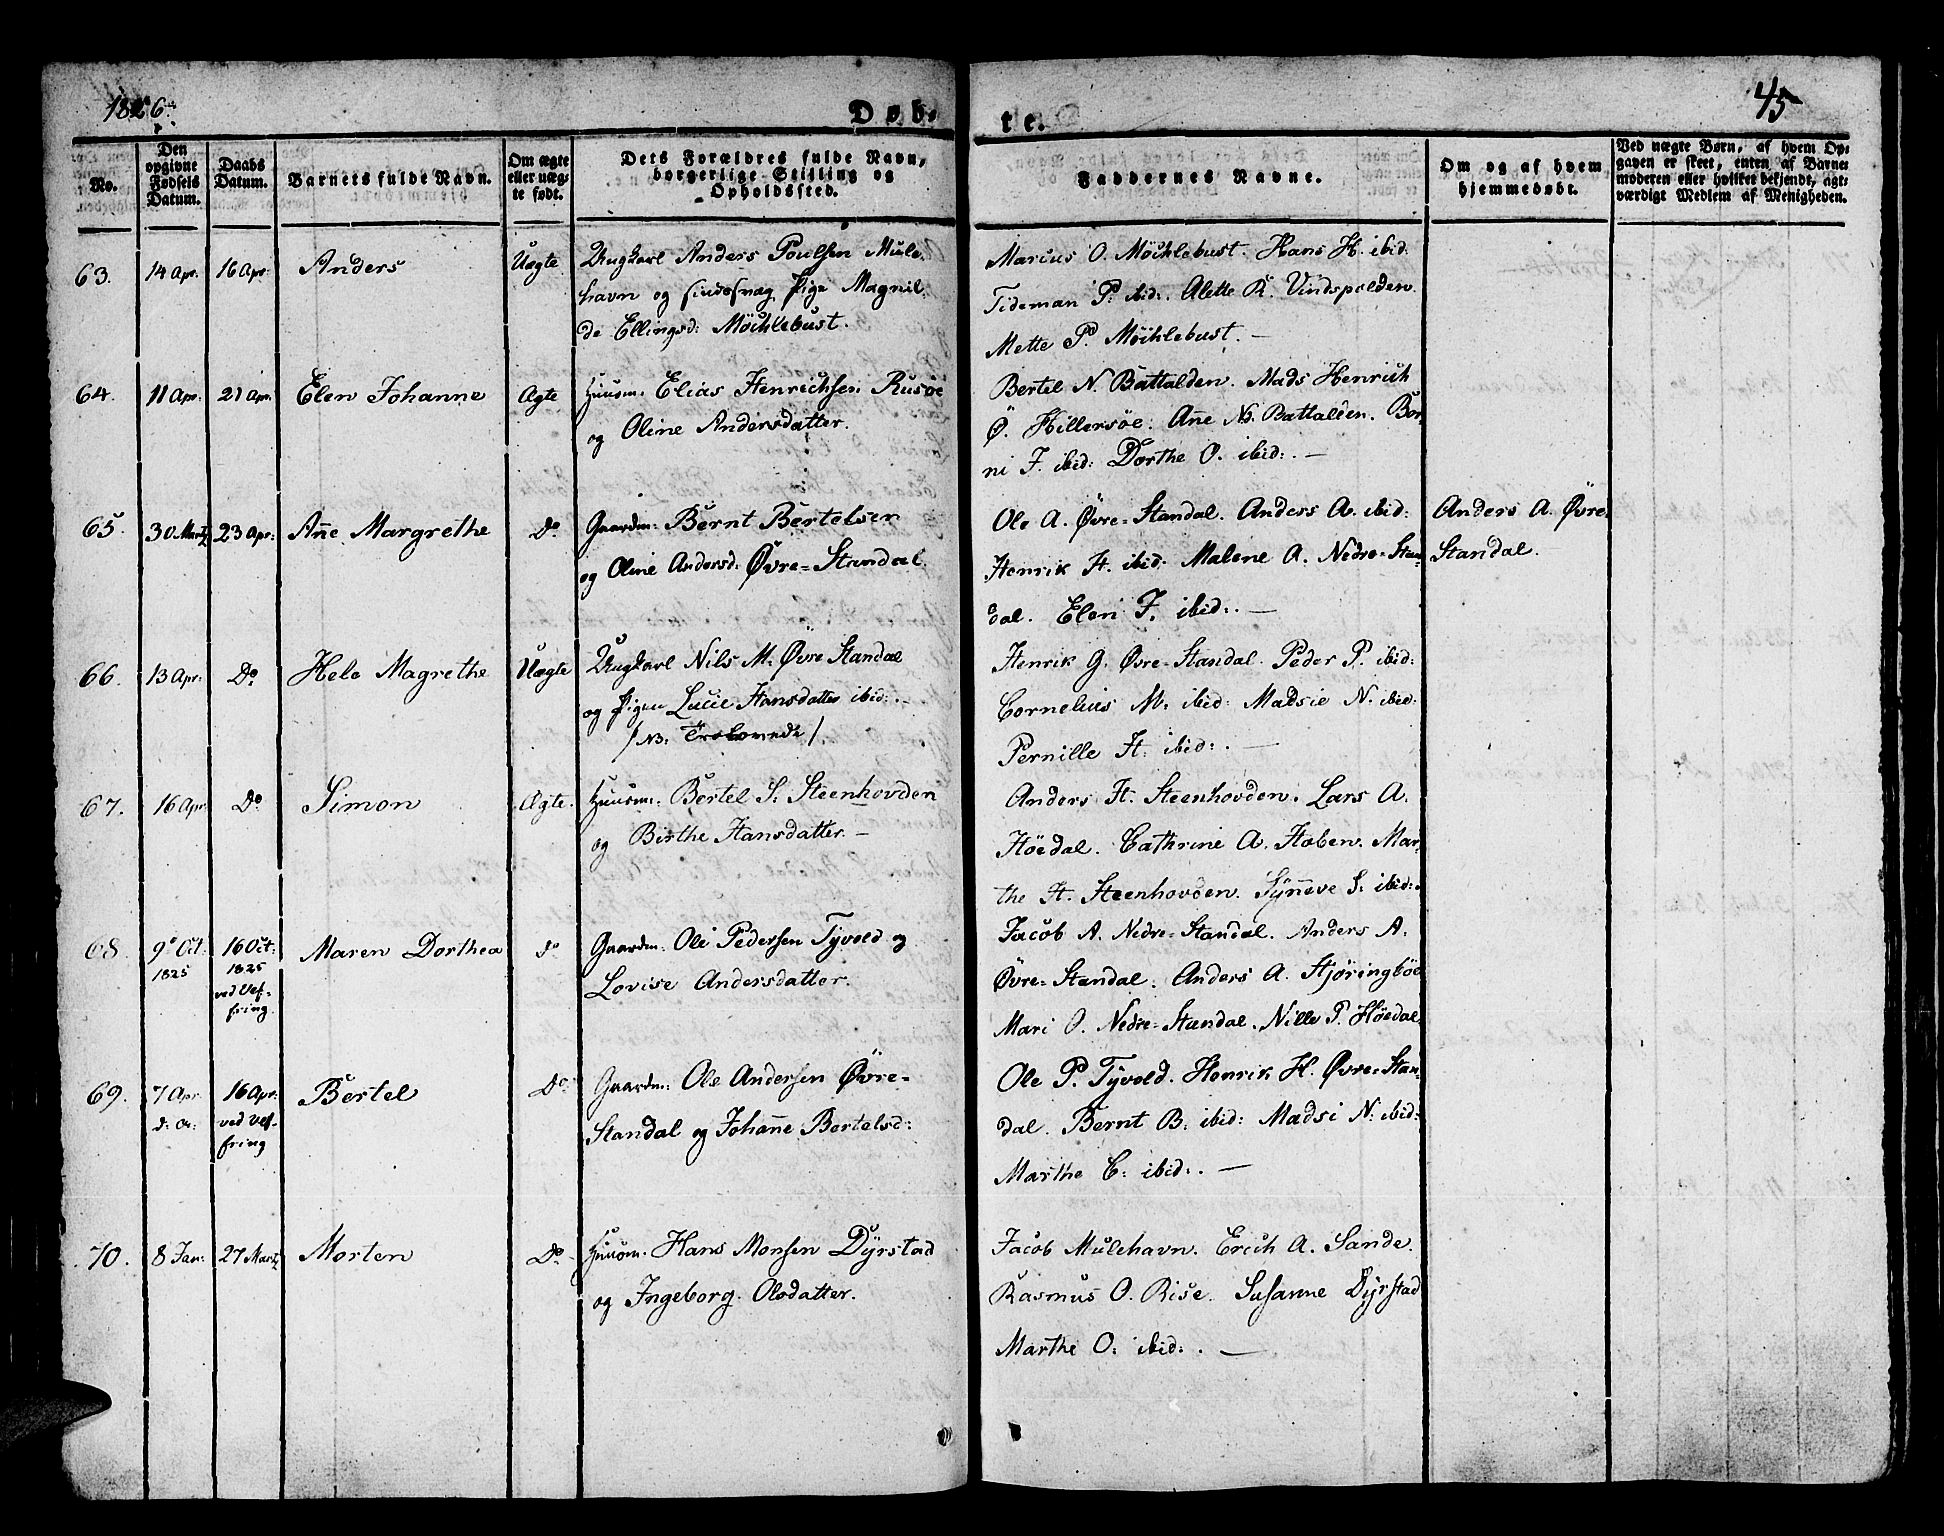 1826.
Døb-
te.
45
No.
Den opgivne Fødsels Datum.
Daabs Datum.
Barnets fulde Navn.
Om ægte eller uægte født.
Dets Forældres fulde Navn, borgerlige Stilling og Opholdssted.
Faddernes Navne.
Om og af hvem hjemmedøbt.
Ved uægte Børn, af hvem Opgaven er skeet, enten af Barnemoderen eller hvilket bekjendt, agtværdigt Medlem af Menigheden.
63. 14 Apr. 16 Apr: Anders Uægte Ungkarl Anders Poulsen Mule
havn og Pige Magnil
de Ellingsd: Möchlebust.
Marcus O. Möchlebust. Hans H. ibid.
Tideman P. ibid:. Alette K. Vindspolden.
Mette P. Möchlebust. —
64. 11 Apr. 21 Apr. Elen Johanne Ægte Huusm: Elias Henrichsen Rusöe
og Oline Andersdatter.
Bertel N. Battalden. Mads Henrich
Ö. Hillersöe. Añe N. Battalden. Bor
ni J. ibid: Dorthe O. ibid:. —
65. 30 Martz 23 Apr: Añe Margrethe Do. Gaardm: Bernt Bertelsen
og Oline Andersd: Övre=Standal.
Ole A. Övre=Standal. Anders A. ibid:
Henrik H. ibid. Malene A. Nedre=Stan=
dal. Eleri J. ibid:. —
Anders A. Övre
Standal.
66. 13 Apr: Do. Hele Magrethe Uægte Ungkarl Nils M. Övre Standal
og Pigen Lucie Hansdatter ibid:.
/NB: Trolovede/
Henrik G. Övre=Standal. Peder P. ibid:
Cornelius M. ibid: Madsie N. ibid:
Pernille H. ibid:. —
67. 16 Apr Do. Simon Ægte. Huusm: Bertel S. Steenhovden
og Birthe Hansdatter. —
Anders H. Steenhovden. Lars A.
Höedal. Cathrine A. Hoben. Mar=
the H. Steenhovden. Sÿneve S. ibid:.
68. 9de Oct. 1825 16 Oct: 1825 ved Vef=
fring Maren Dorthea do Gaardm: Ole Pedersen Tyvold og
Lovise Andersdatter.
Jacob A. Nedre=Standal. Anders A.
Övre=Standal. Anders A. Hjöringböe
Mari O. Nedre=Standal. Nille P. Höedal.
69. 7 Apr. d: A: 16 Apr: ved Vef=
fring Bertel Do. Gaardm: Ole Andersen Övre=
Standal og Johañe Bertelsd:
Ole P. Tyvold. Henrik H. Övre=Stan=
dal. Bernt B. ibid: Madsi N. ibid:
Marthe C: ibid:. —
70. 8 Jan: 27 Martz Morten Do. Huusm: Hans Monsen Dÿrstad
og Ingeborg Olsdatter.
Jacob Mulehavn. Erich A. Sande.
Rasmus O. Rise. Susanne Dyrstad
Marthe O: ibid:. —